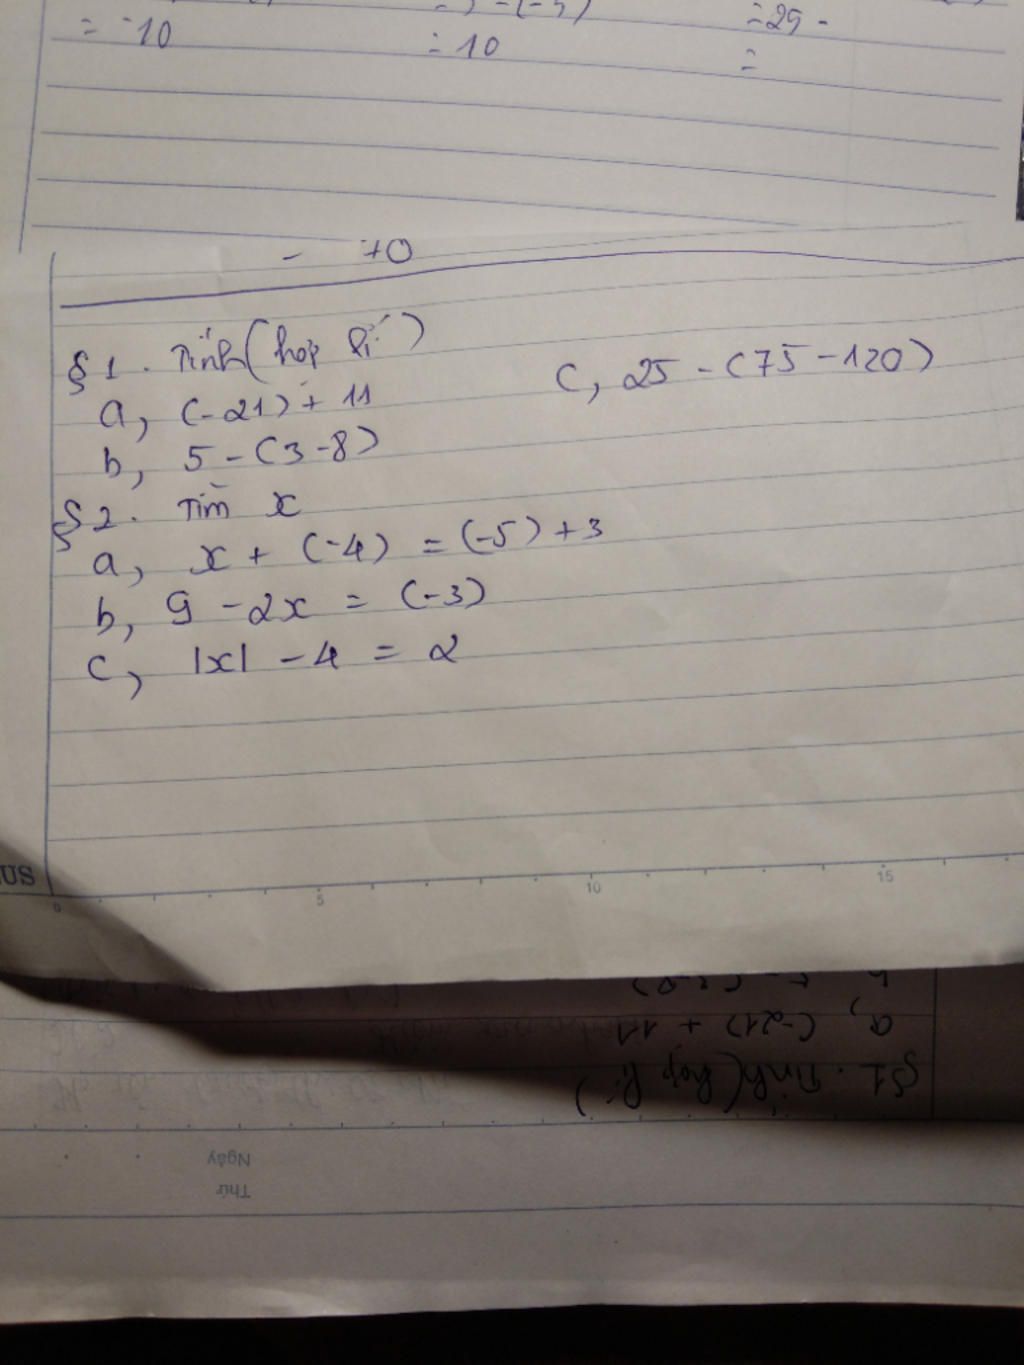 = -10
= 10
= 25 -
=
- 70
§1. Tính (hợp lí)
a, (-21) + 11
b, 5 - (3 - 8)
c, 25 - (75 - 120)
§2. Tìm x
a, x + (-4) = (-5) + 3
b, 9 - 2x = (-3)
c, |x| - 4 = 2
US
0 5 10 15
a, (-21) + 11
§1. Tính (hợp lí)
Ngày
Thứ